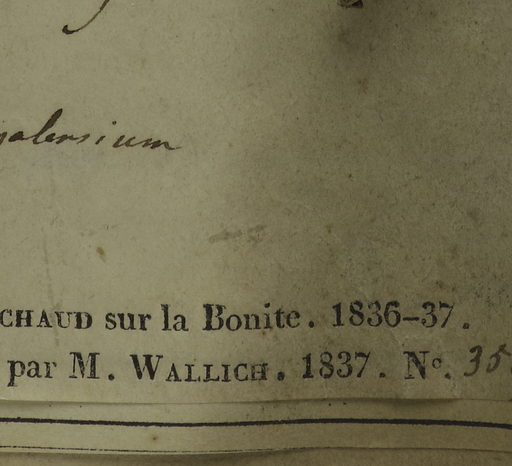 CHAUD sur la Bonite. 1836-37.
par M. WALLICH. 1837. N°. 35